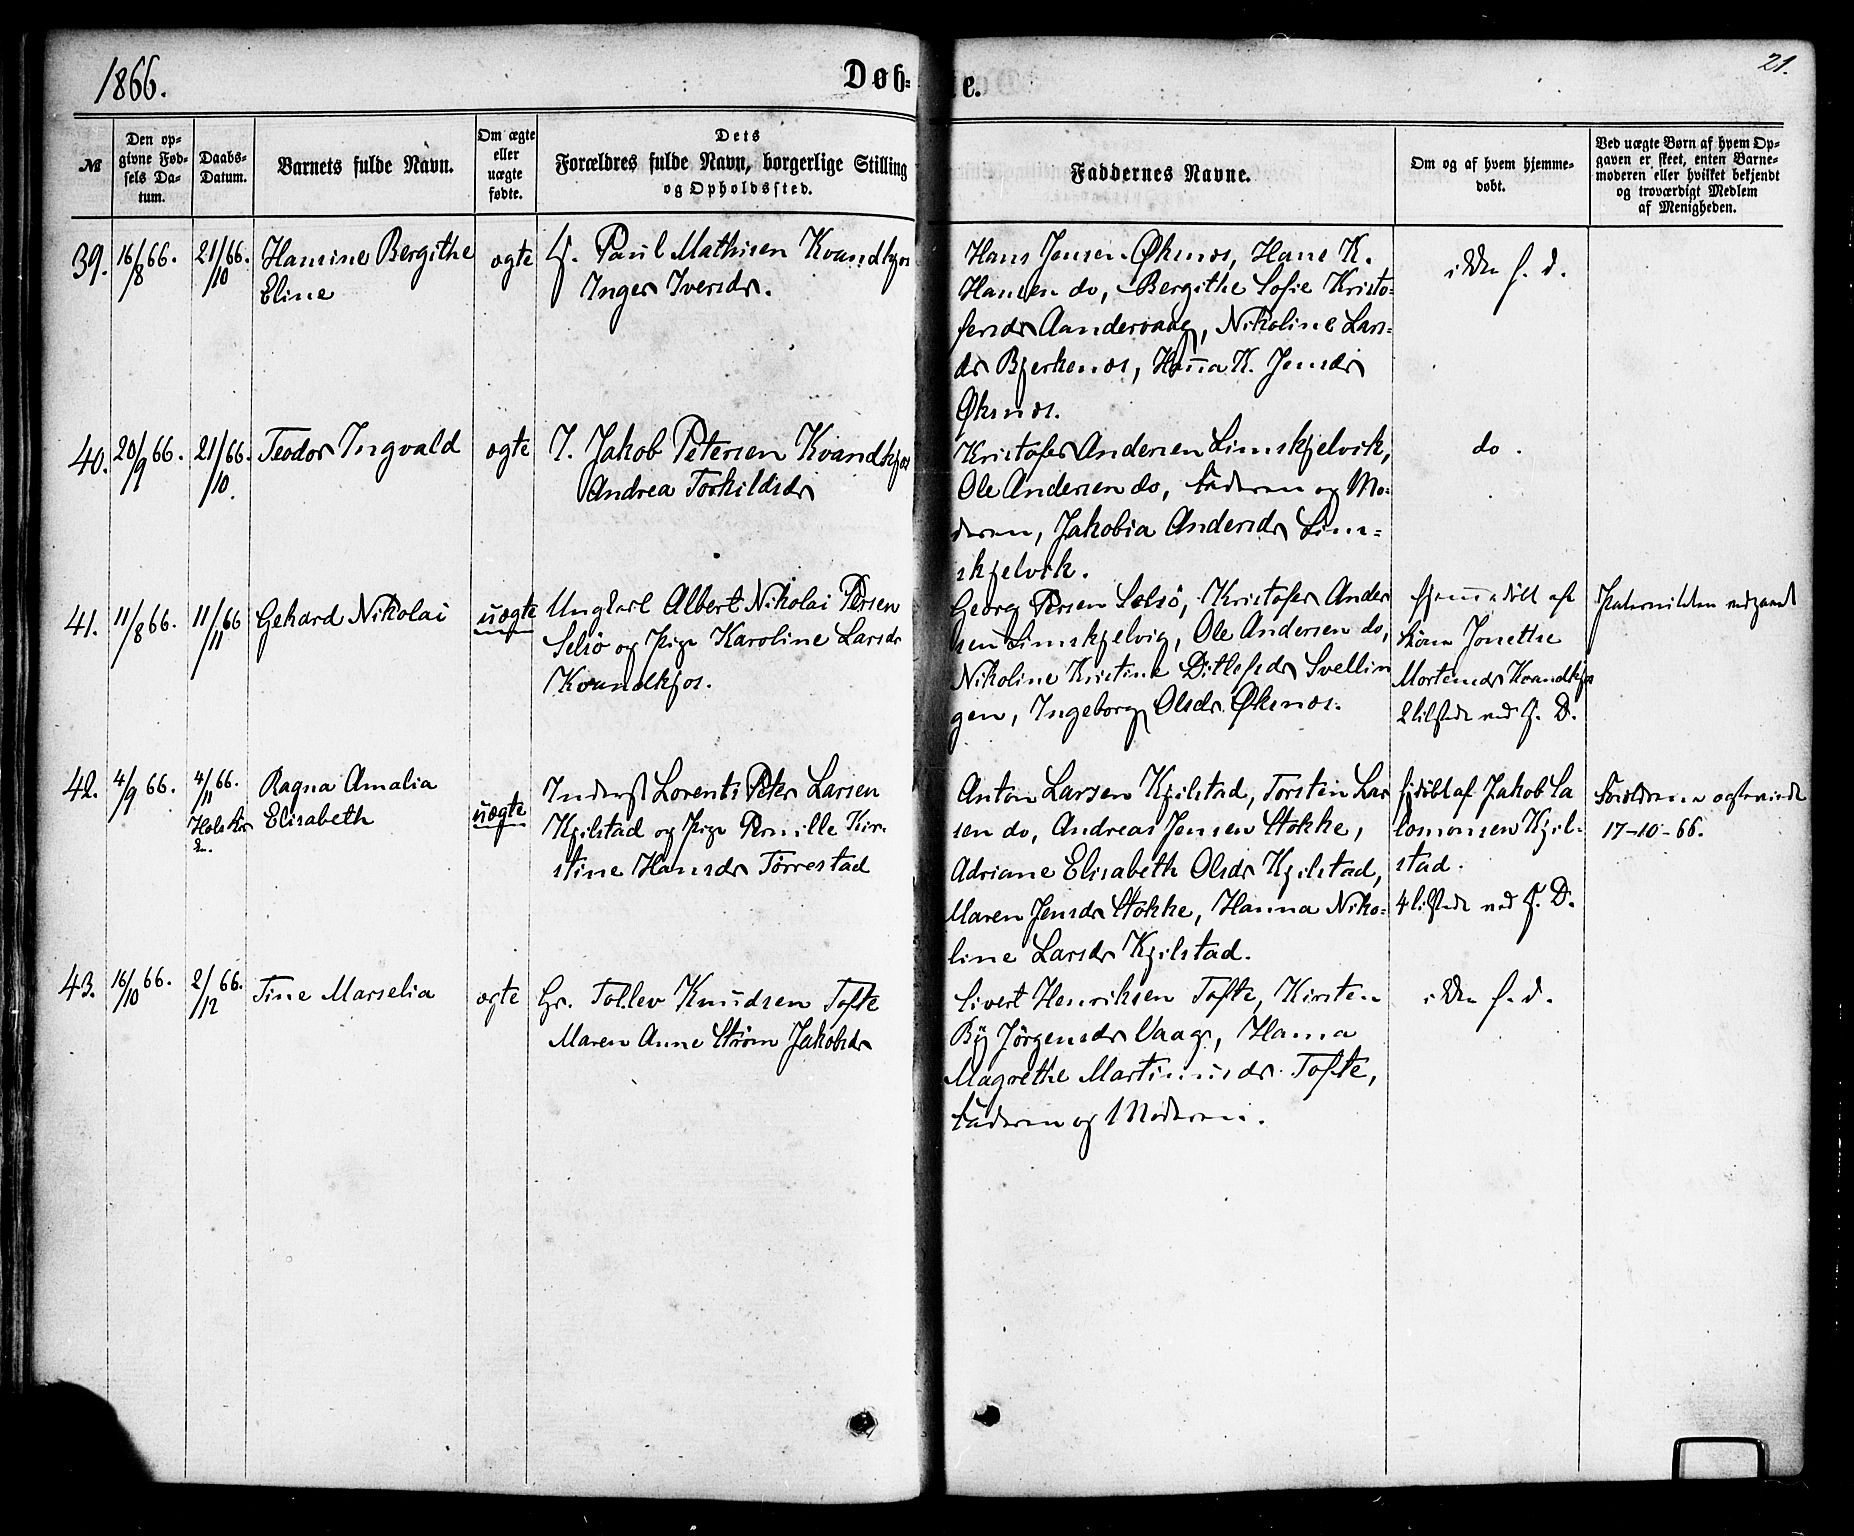 1866.
Døb-
te.
21.
№
Den op-
givne Fød-
sels Da-
tum.
Daabs-
Datum.
Barnets fulde Navn.
Om ægte
eller
uægte
fødte.
Dets
Forældres fulde Navn, borgerlige Stilling
og Opholdssted.
Faddernes Navne.
Om og af hvem hjemme-
døbt.
Ved uægte Børn af hvem Op-
gaven er skeet, enten Barne-
moderen eller hvilket bekjendt
og troværdigt Medlem
af Menigheden.
39.
16/8 66.
21/10 66.
Hansine Bergithe
Eline
ægte
Paul Mathisen Kvandkjos
Inger Iversdr.
Hans Jensen Øksnæs, Hans K.
Hansen do, Bergithe Sofie Kristo-
fersdr Aandervaag, Nikoline Lars-
dr Bjerkenæs, Hanna K. Jensdr
Øksnæs.
ikke h. d.
40.
20/9 66.
21/10 66.
Teodor Ingvald
ægte
I. Jakob Petersen Kvandkjos
Andrea Torkildsdr
Kristofer Andersen Limskjelvik,
Ole Andersen do, Faderen og Mo-
deren, Jakobia Andersdr Lim-
skjelvik.
do.
41.
11/8 66.
11/11 66
Gehard Nikolai
uægte
Ungkarl Albert Nikolai Persen
Selsø og Pige Karoline Larsdr
Kvandkjos.
Georg Persen Selsø, Kristofer Ander
sen Limskjelvig, Ole Andersen do,
Nikoline Kristine Ditlefsdr Svellin
gen, Ingeborg Olsdr Øksnæs.
hjemmedøbt af
Jonethe
Mortensdr Kvandkjos
2 tilstede ved h. D.
Paterniteten vedgaaet
42.
4/9 66.
4/11 66.
Ragna Amalia
Elisabeth
uægte
Inderst Lorents Peter Larsen
Kjilstad og Pige Pernille Kir-
stine Hansdr Tørrestad
Anton Larsen Kjilstad, Torstin Lar
sen do, Andreas Jensen Stokke,
Adriane Elisabeth Olsdr Kjilstad,
Maren Jensdr Stokke, Hanna Niko-
line Larsdr Kjilstad.
hjdøbt af Jakob Sa
lomonsen Kjil-
stad.
4 tilstede ved h. D.
Forældrene ægteviede
17-10-66.
43.
16/10 66.
2/12 66.
Tine Marselia
ægte
Gr. Tollev Knudsen Tofte
Maren Anne Strøm Jakobsdr
Sivert Henriksen Tofte, Kirsten
By Jørgensdr Vaag, Hanna
Magrethe Martinusdr Tofte,
Faderen og Moderen.
ikke h. d.